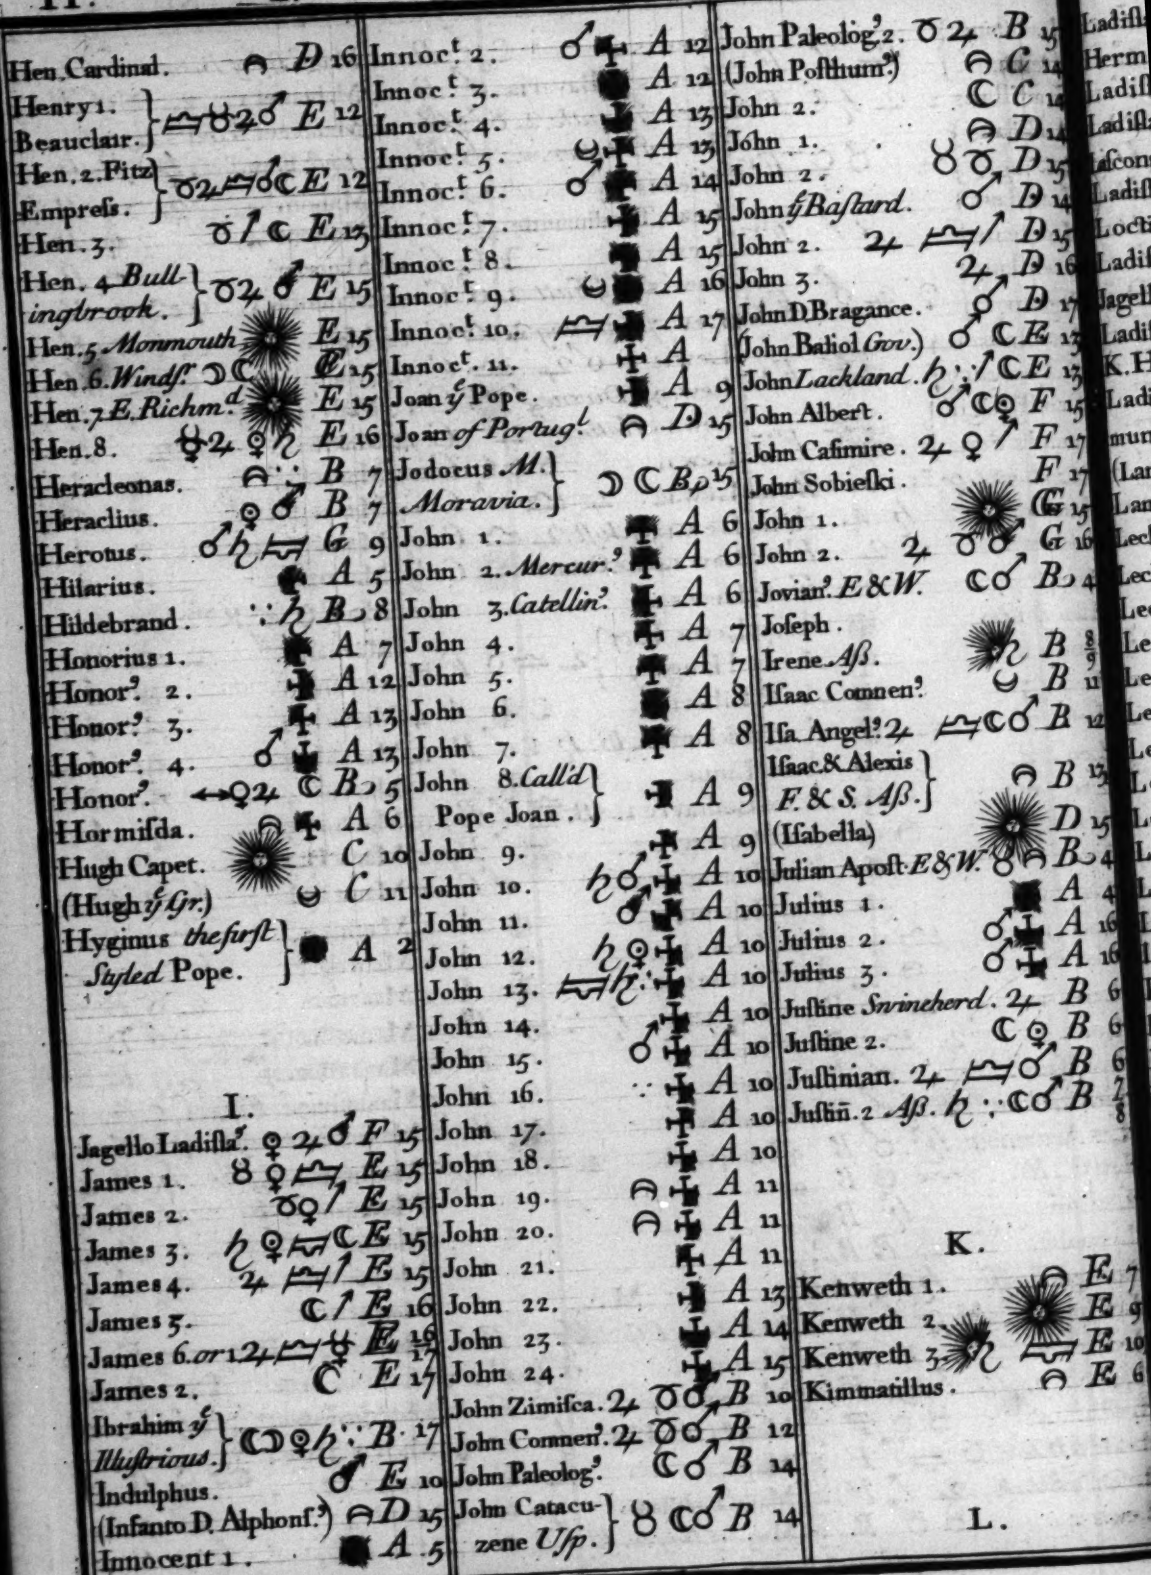 Hen. Cardinal. D 16
Henry 1. Beauclair. E 12
Hen. 2. Fitz Empreſs. E 12
Hen. 3. E 13
Hen. 4 Bullingbrook. E 15
Hen. 5 Monmouth E 15
Hen. 6. Windſ. E 15
Hen. 7. E. Richm.d E 15
Hen. 8. ☿♃ ♀♄ E 16
Heracleonas. B 7
Heraclius. ♀♂ B 7
Herotus. ♂♄ G 9
Hilarius. A 5
Hildebrand. ♄ B 8
Honorius 1. A 7
Honor.9 2. A 12
Honor.9 3. A 13
Honor.9 4. ♂ A 13
Honor.9 ♀♃ ☾ B 5
Hormiſda. A 6
Hugh Capet. C 10
(Hugh yͤ Gr.) C 11
Hyginus the firſt
Styled Pope. A 2
I.
Jagello Ladiſla.9 ♀♃♂ F 15
James 1. ♉♀ E 15
James 2. E 15
James 3. ♄ E 15
James 4. ♃ E 15
James 5. ☾ E 16
James 6. or 1. E 16 17
James 2. ☾ E 17
Ibrahim yͤ
Illuſtrious. B 17
Indulphus. ♂ E 10
(Infanto D. Alphonſ.9) D 15
Innocent 1. A 5
Innoc.t 2. ♂ A 12
Innoc.t 3. A 12
Innoc.t 4. A 13
Innoc.t 5. A 13
Innoc.t 6. ♂ A 14
Innoc.t 7. A 15
Innoc.t 8. A 15
Innoc.t 9. A 16
Innoc.t 10. A 17
Innoc.t 11. A
Joan yͤ Pope. A 9
Joan of Portug.l D 15
Jodocus M.
Moravia. B 15
John 1. A 6
John 2. Mercur.9 A 6
John 3. Catellin.9 A 6
John 4. A 7
John 5. A 7
John 6. A 8
John 7. A 8
John 8. Call'd
Pope Joan. A 9
John 9. A 9
John 10. ♄♂ A 10
John 11. ♂ A 10
John 12. ♄ A 10
John 13. ♄ A 10
John 14. A 10
John 15. ♂ A 10
John 16. A 10
John 17. A 10
John 18. A 10
John 19. A 11
John 20. A 11
John 21. A 11
John 22. A 13
John 23. A 14
John 24. A 15
John Zimiſca. ♃ ♂ B 10
John Comnen.9 ♃ ♂ B 12
John Paleolog.9 ☾♂ B 14
John Catacuzene Uſp. ♉ ☾♂ B 14
John Paleolog.9 2. ♃ B 15
(John Poſthum.9) C 14
John 2. ☾ C 14
John 1. D 14
John 2. D 15
John yͤ Baſtard. ♂ D 14
John 2. ♃ D 15
John 3. ♃ D 16
John D. Bragance. ♂ D 17
(John Baliol Gov.) ♂ ☾ E 13
John Lackland. ♄ ☾ E 13
John Albert. ♂☾ F 15
John Caſimire. ♃ ♀ F 17
John Sobieſki. F 17
John 1. G 15
John 2. ♃ ♂ G 16
Jovian.9 E & W. ☾♂ B 4
Joſeph.
Irene Aß. ♄ B 8 9
Iſaac Comnen.9 B 11
Iſa. Angel.9 ♃ ☾♂ B 12
Iſaac & Alexis
F. & S. Aß. B 13
(Iſabella) D 15
Julian Apoſt. E & W. B 4
Julius 1. A 4
Julius 2. ♂ A 16
Julius 3. ♂ A 16
Juſtine Swineherd. ♃ B 6
Juſtine 2. ☾ B 6
Juſtinian. ♃ ♂ B 6
Juſtin̄. 2 Aß. ♄ ☾♂ B 7 8
K.
Kenweth 1. E 7
Kenweth 2. E 9
Kenweth 3. ♄ E 10
Kimmatillus. E 6
L.